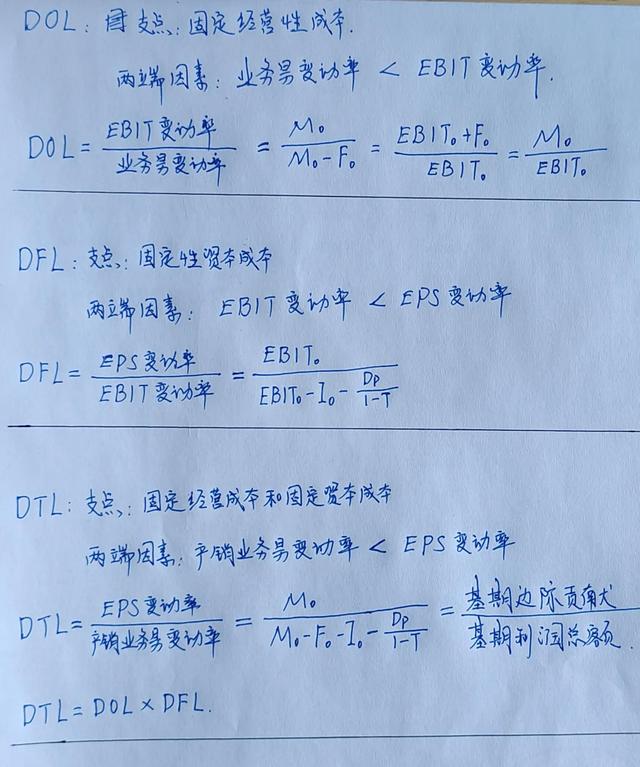 DOL: 支点: 固定经营性成本.
两端因素: 业务量变动率 < EBIT变动率.
DOL = EBIT变动率/业务量变动率 = M₀/(M₀-F₀) = (EBIT₀+F₀)/EBIT₀ = M₀/EBIT₀
DFL: 支点: 固定性资本成本
两端因素: EBIT变动率 < EPS变动率
DFL = EPS变动率/EBIT变动率 = EBIT₀/(EBIT₀-I₀-Dp/(1-T))
DTL: 支点: 固定经营成本和固定资本成本
两端因素: 产销业务量变动率 < EPS变动率
DTL = EPS变动率/产销业务量变动率 = M₀/(M₀-F₀-I₀-Dp/(1-T)) = 基期边际贡献/基期利润总额.
DTL = DOL × DFL.